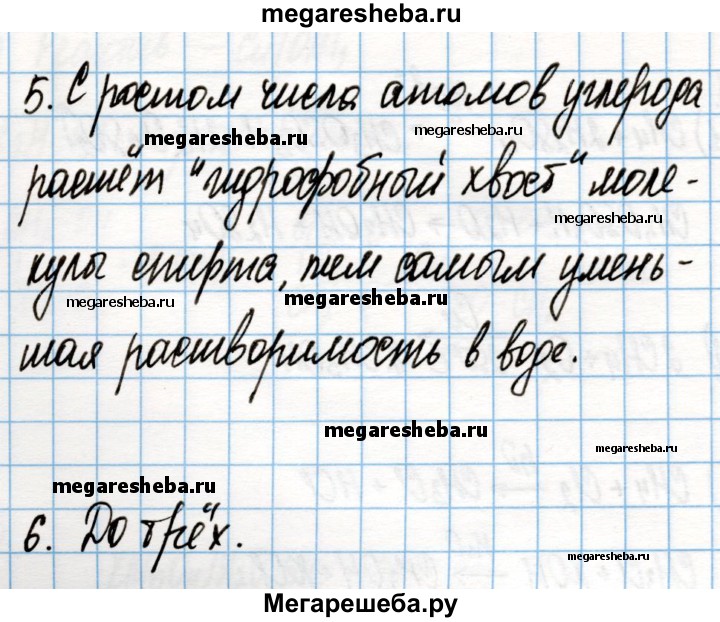 megaresheba.ru
5. С ростом числа атомов углерода
megaresheba.ru megaresheba.ru
растёт "гидрофобный хвост" моле-
megaresheba.ru
кулы спирта, тем самым умень-
megaresheba.ru megaresheba.ru
шая растворимость в воде.
megaresheba.ru megaresheba.ru
megaresheba.ru
6. До трёх.
megaresheba.ru
Мегарешеба.ру